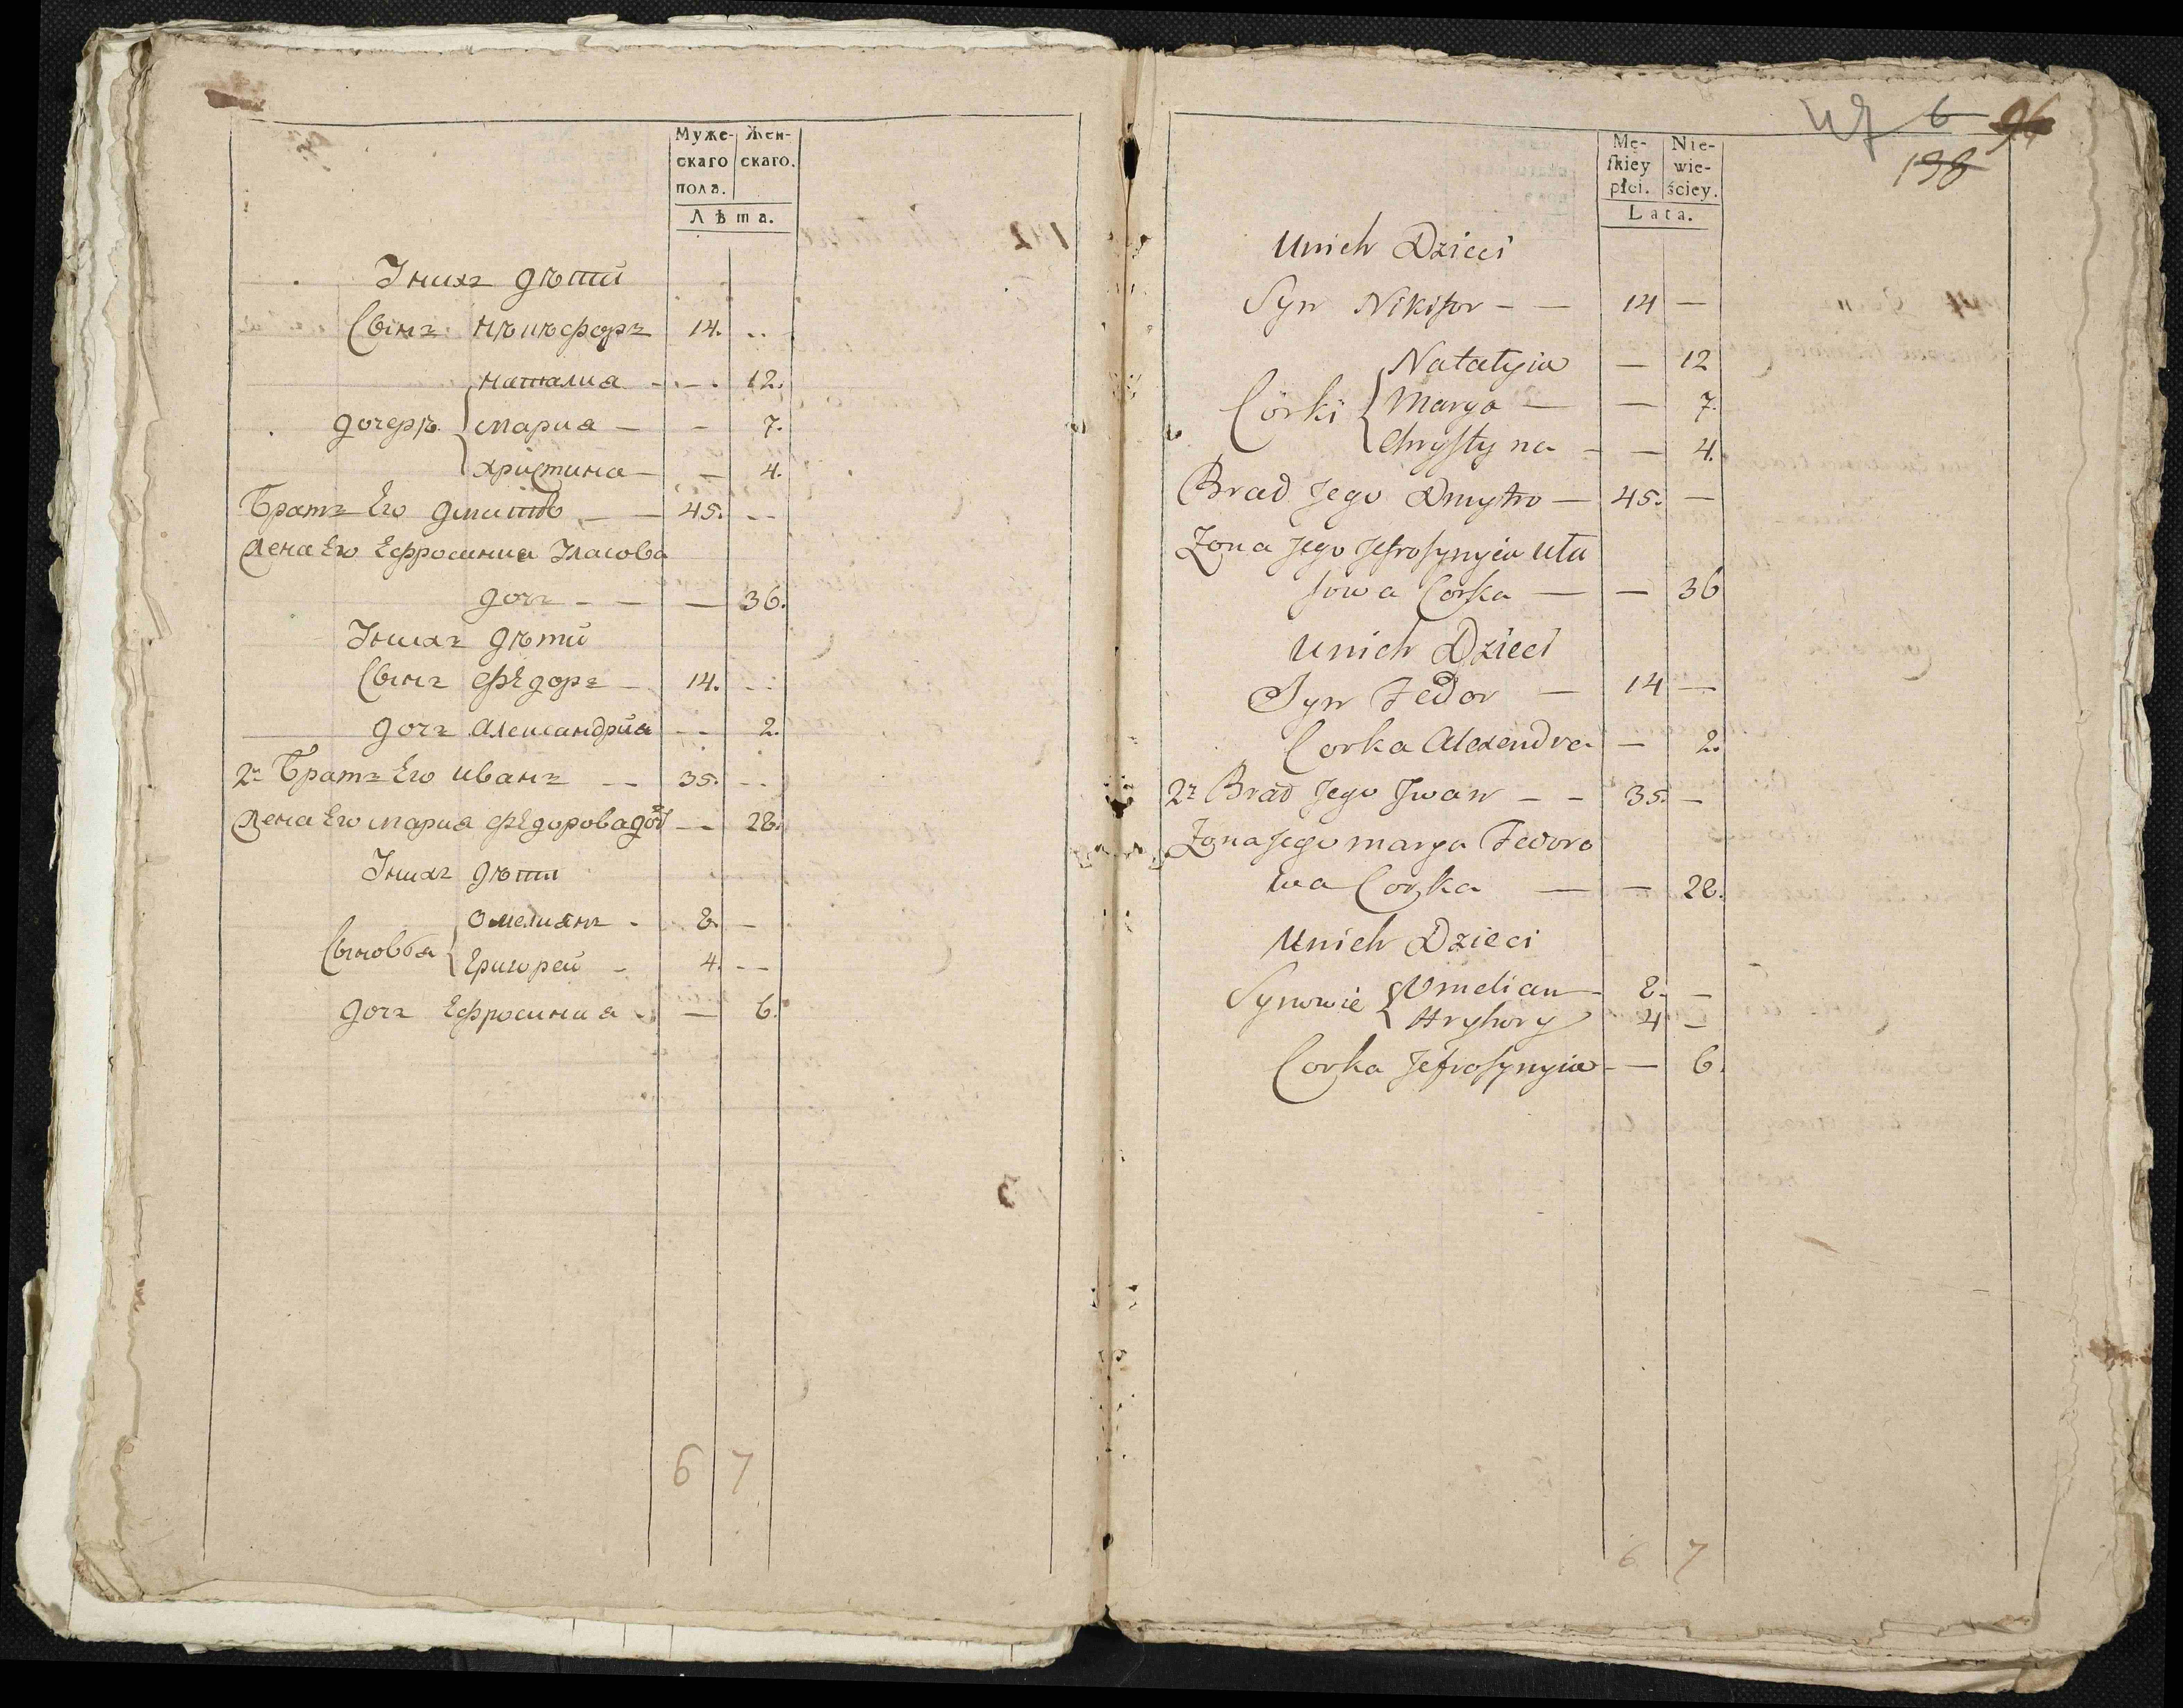 Муже- Жен-
скаго скаго.
пола.
Лѣта.
Унихъ дѣти
Сынъ Никифоръ 14. --
Наталиа - - - 12.
дочерѣ Мариа — - 7.
Христина — — 4.
Братъ Его Дмитръ — — 45. --
Жена Его Ефросиниа Уласова
дочъ - — — 36.
Унихъ дѣти
Сынъ Фѣдоръ — 14. --
дочъ Александриа - - 2.
2й Братъ Его Иванъ — 35. --
Жена Его Мариа Фѣдорова доч — 28.
Унихъ дѣти
Омелианъ - 8. —
Сыновья
Григорей - 4. --
дочъ Ефросиниа - — 6.
6 7
6 94
198
Mę- Nie-
ſkiey wie-
płci. ściey.
Lata.
Unich Dzieci
Syn Nikifor - — 14 —
Natalyia — 12
Córki Marya — — 7.
Chrystyna - — 4.
Brad Jego Dmytro — 45. —
Żona Jego Jefroſynyia Uła
ſowa Corka — — 36
Unich Dzieci
Syn Fedor — 14 —
Corka Alexandra — 2.
2й Brad Jego Jwan - - 35. —
Żona Jego Marya Fedoro
wa Corka — — 28.
Unich Dzieci
Omelian - 8. —
Synowie
Hryhory 4 —
Corka Jefroſynyia - — 6.
6 7